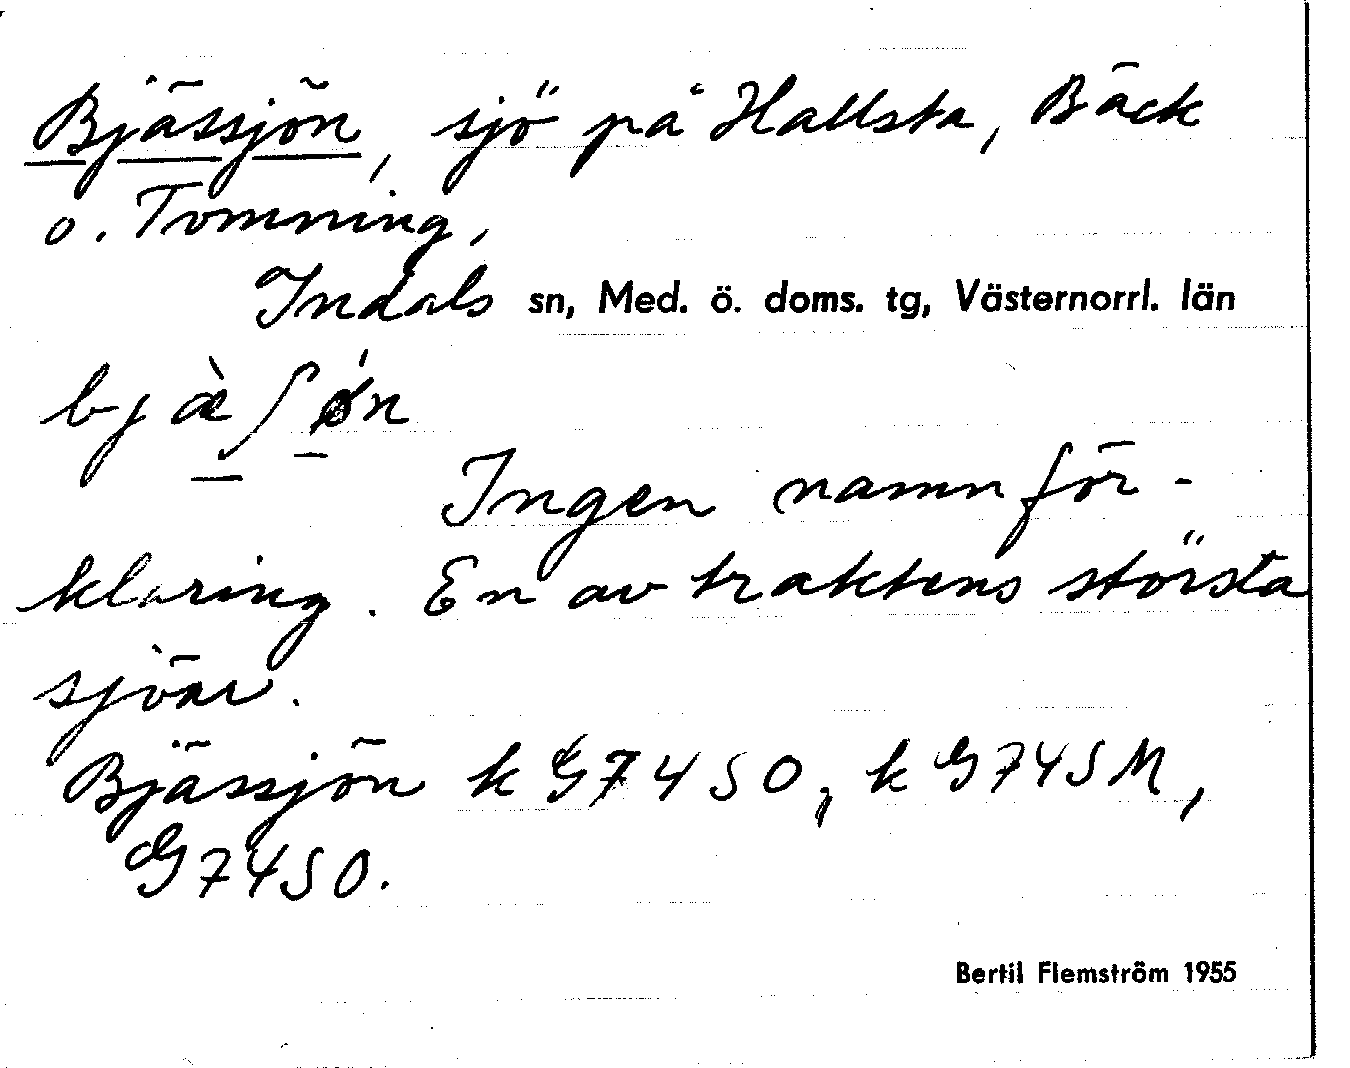 Bjässjön, sjö på Hallsta, Bäck
o. Tomming,
Indals sn, Med. ö. doms. tg, Västernorrl. län
bjæ̀ʃǿn
Ingen namnför-
klaring. En av traktens största
sjöar.
Bjässjön k G74SO, k G74SM,
G74SO.
Bertil Flemström 1955